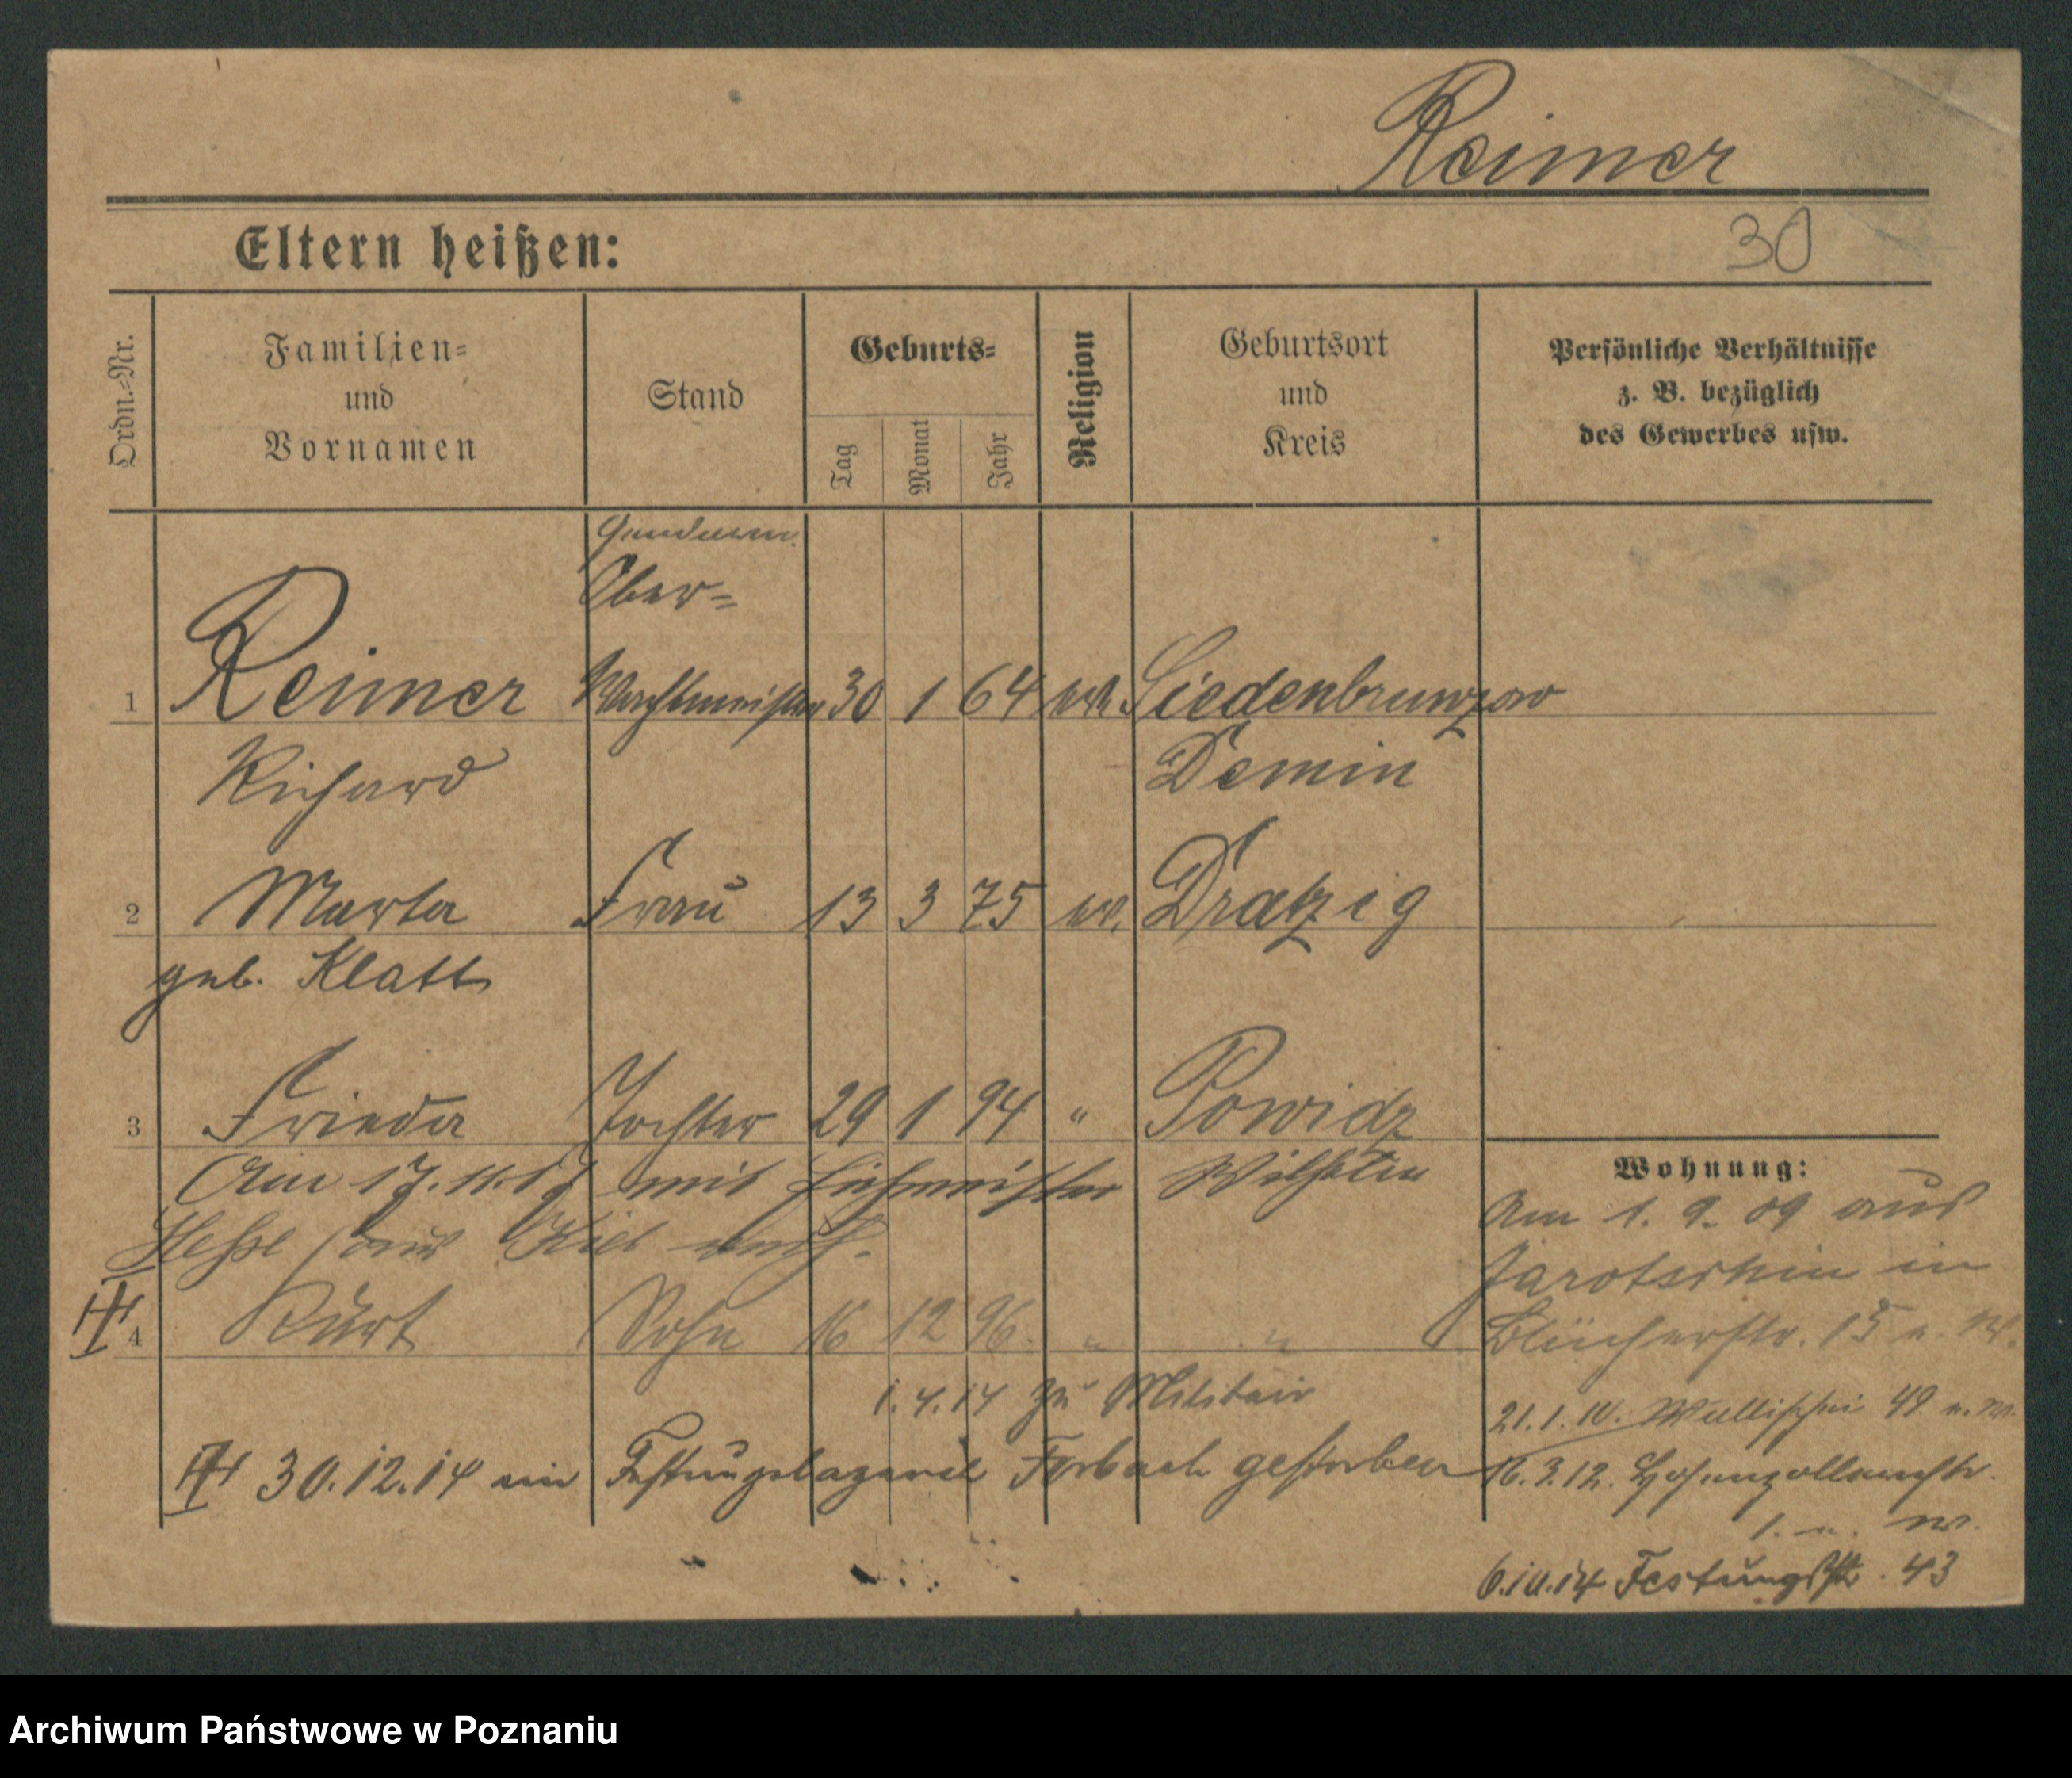 Reimer
Eltern heißen:
30
Ordn.=Nr.
Familien=
und
Vornamen
Stand
Geburts=
Tag
Monat
Jahr
Religion
Geburtsort
und
Kreis
Persönliche Verhältnisse
z. B. bezüglich
des Gewerbes usw.
Gendarm.
Ober=
1 Reimer Wachtmeister 30 1 64 ev. Siedenbrunzow
Richard Demin
2 Marta Frau 13 3 75 ev. Dratzig
geb. Klatt
3 Frieda Tochter 29 1 94 " Powidz
Am 17. 11. mit Wilhelm
Hesse aus Kiel verh.
4 Kurt Sohn 16 12 96 " "
1.4.14 zu Militair
30.12.14 im Festungslazaret Forbach gestorben
Wohnung:
Am 1. 9. 09 aus
Jarotschin in
Blücherstr. 15 u. W.
21.1.10. Wallischei 49 u. W.
16.3.12. Hohenzollernstr.
1. u. W.
6.10.14 Festungsstr. 43
Archiwum Państwowe w Poznaniu